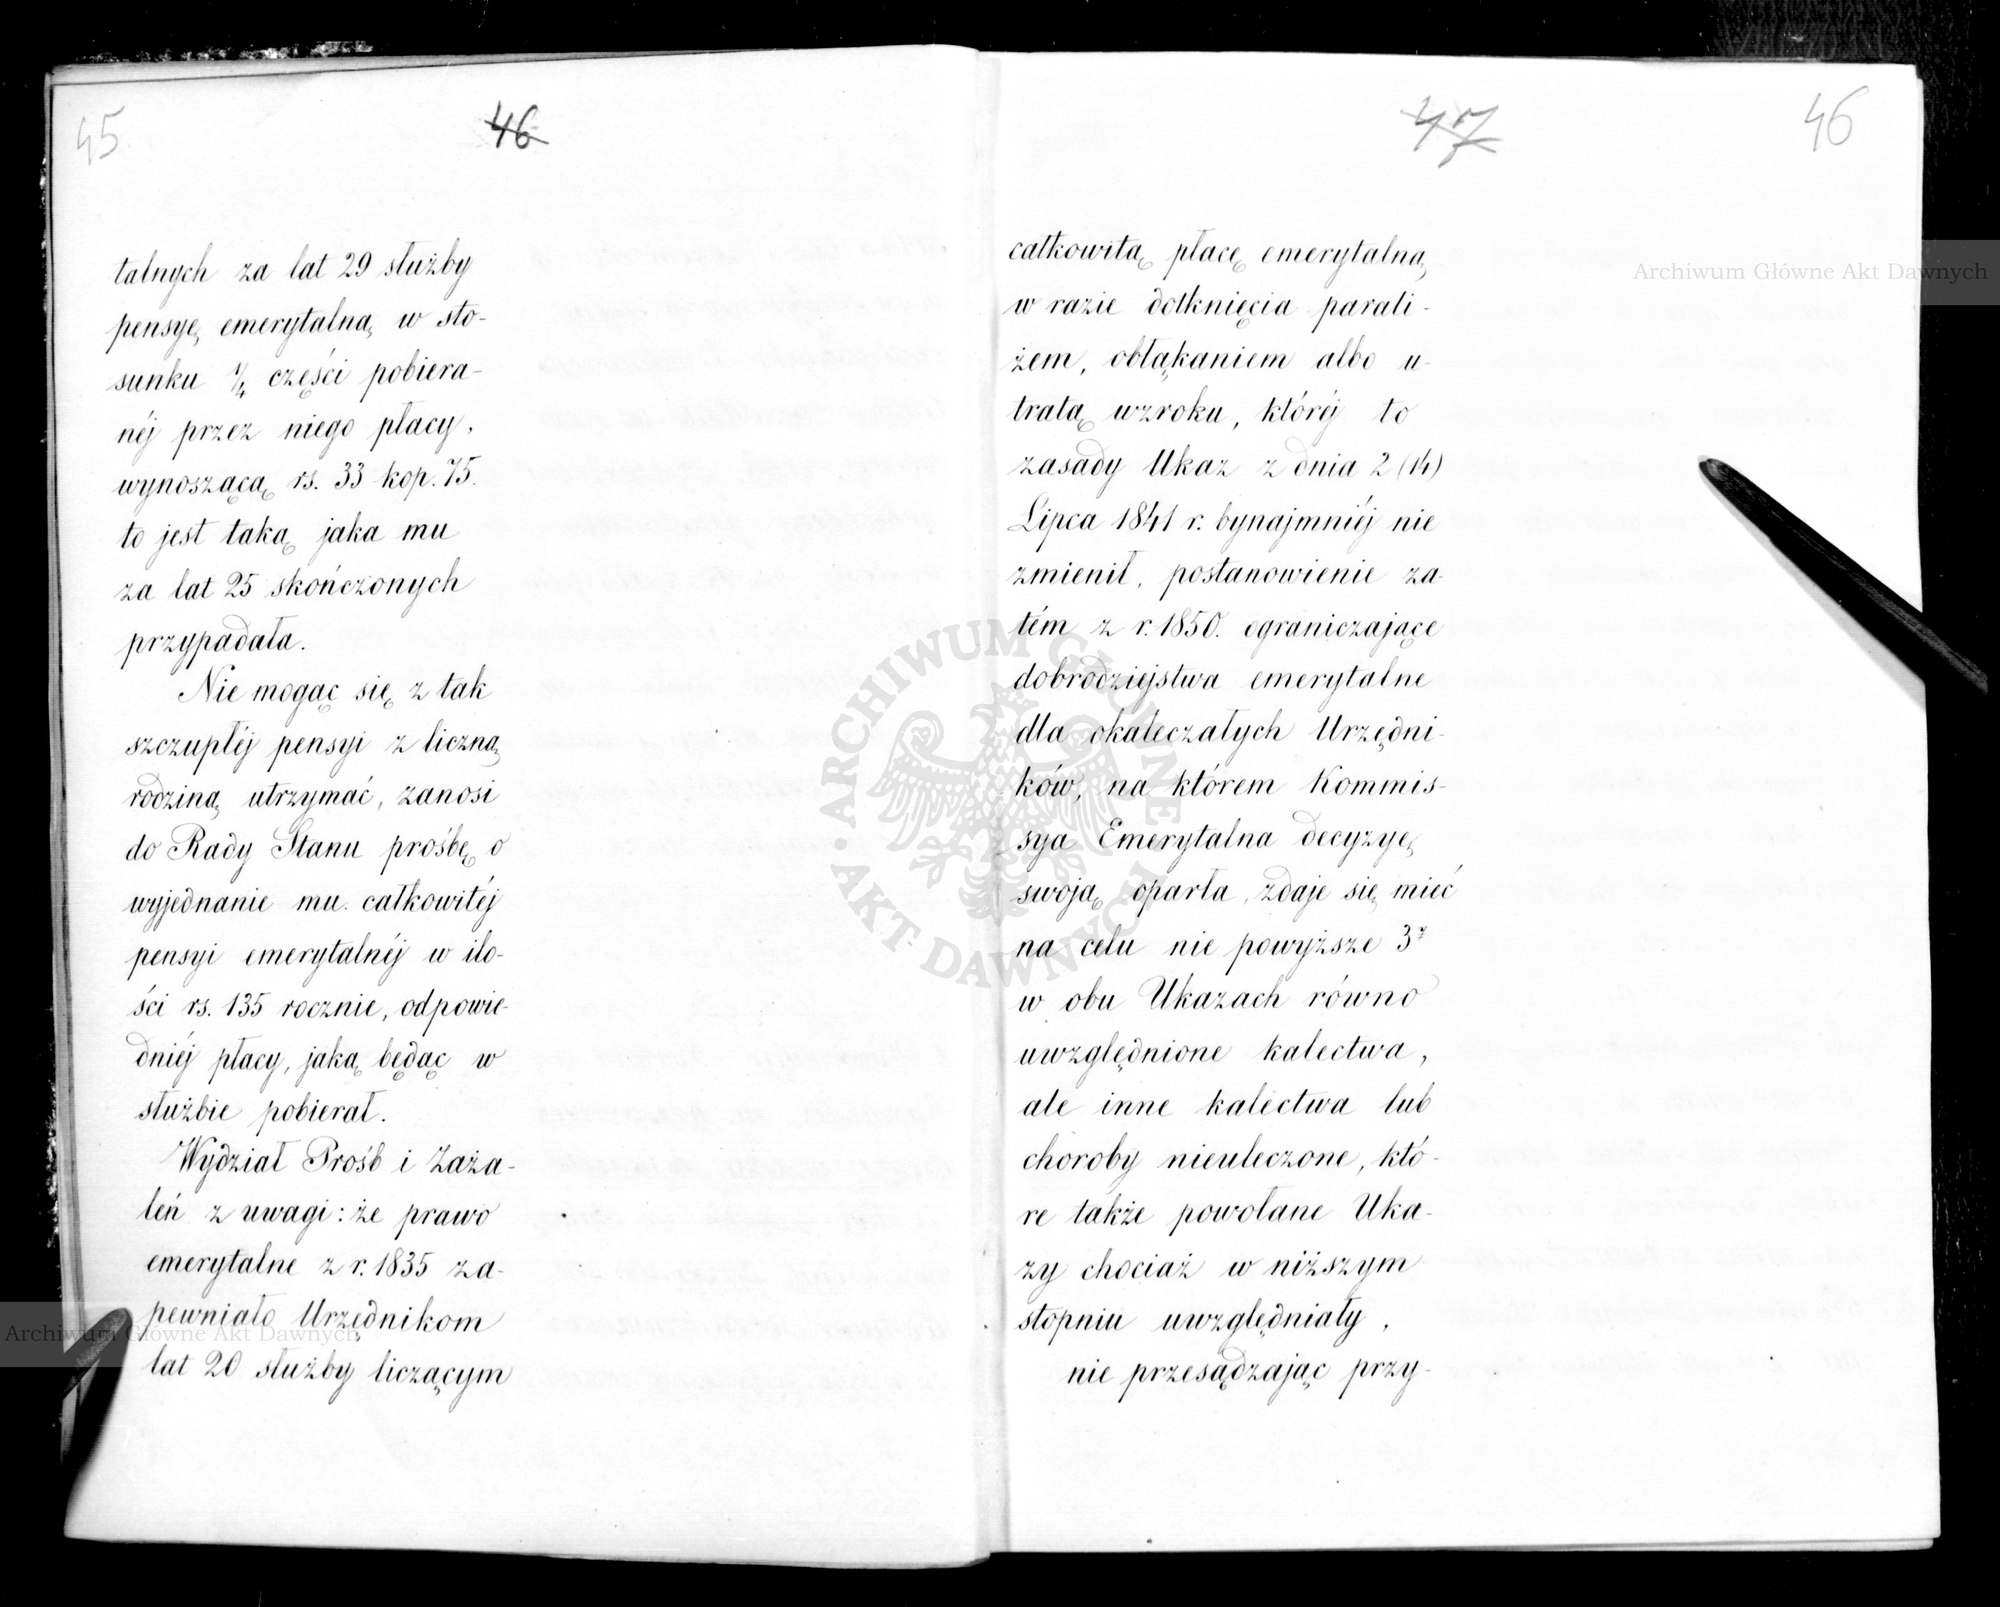 45
46
talnych za lat 29 służby
pensyę emerytalną w sto-
sunku 1/4 części pobiera-
néj przez niego płacy,
wynoszącą rs. 33 kop. 75.
to jest taką jaka mu
za lat 25 skończonych
przypadała.
Nie mogąc się z tak
szczupłéj pensyi z liczną
rodziną utrzymać, zanosi
do Rady Stanu prośbę o
wyjednanie mu całkowitéj
pensyi emerytalnéj w ilo-
ści rs. 135 rocznie, odpowie-
dniéj płacy, jaką będąc w
służbie pobierał.
Wydział Prośb i Zaża-
leń z uwagi: że prawo
emerytalne z r. 1835 za-
pewniało Urzędnikom
lat 20 służby liczącym
47
46
całkowitą płacę emerytalną
w razie dotknięcia parali-
żem, obłąkaniem albo u-
tratą wzroku, któréj to
zasady Ukaz z dnia 2 (14)
Lipca 1841 r. bynajmniéj nie
zmienił, postanowienie za-
tém z r. 1850. ograniczające
dobrodziejstwa emerytalne
dla okaleczałych Urzędni-
ków, na którem Kommis-
sya Emerytalna decyzyę
swoją oparła, zdaje się mieć
na celu nie powyższe 3y
w obu Ukazach równo
uwzględnione kalectwa,
ale inne kalectwa lub
choroby nieuleczone, któ-
re także powołane Uka-
zy chociaż w niższym
stopniu uwzględniały,
nie przesądzając przy-
ARCHIWUM GŁÓWNE AKT DAWNYCH
Archiwum Główne Akt Dawnych
Archiwum Główne Akt Dawnych